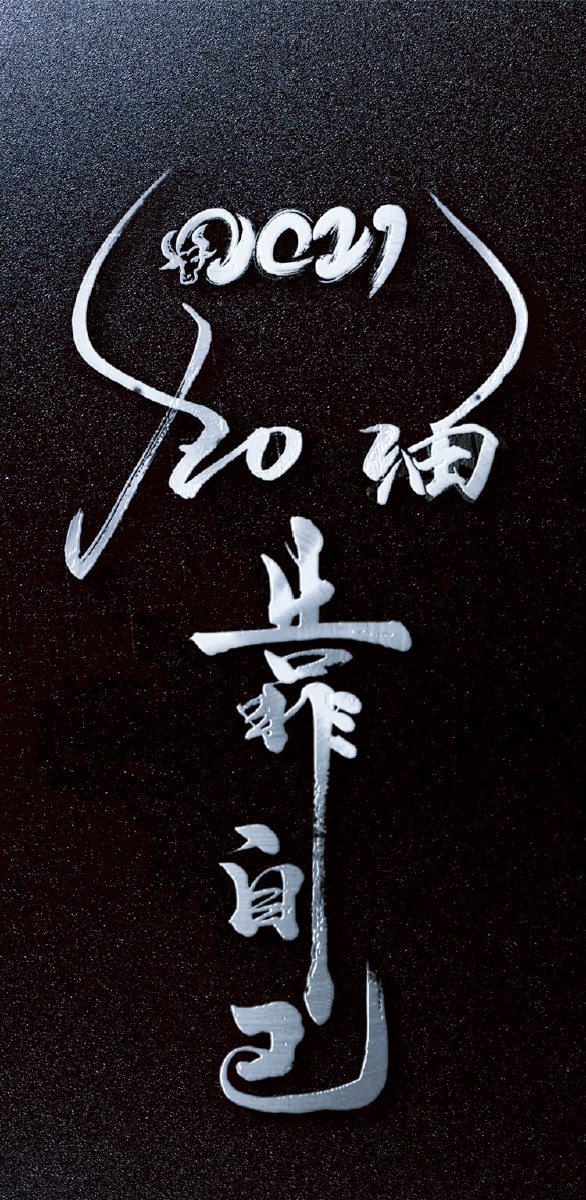 2021
加油
靠
自
己